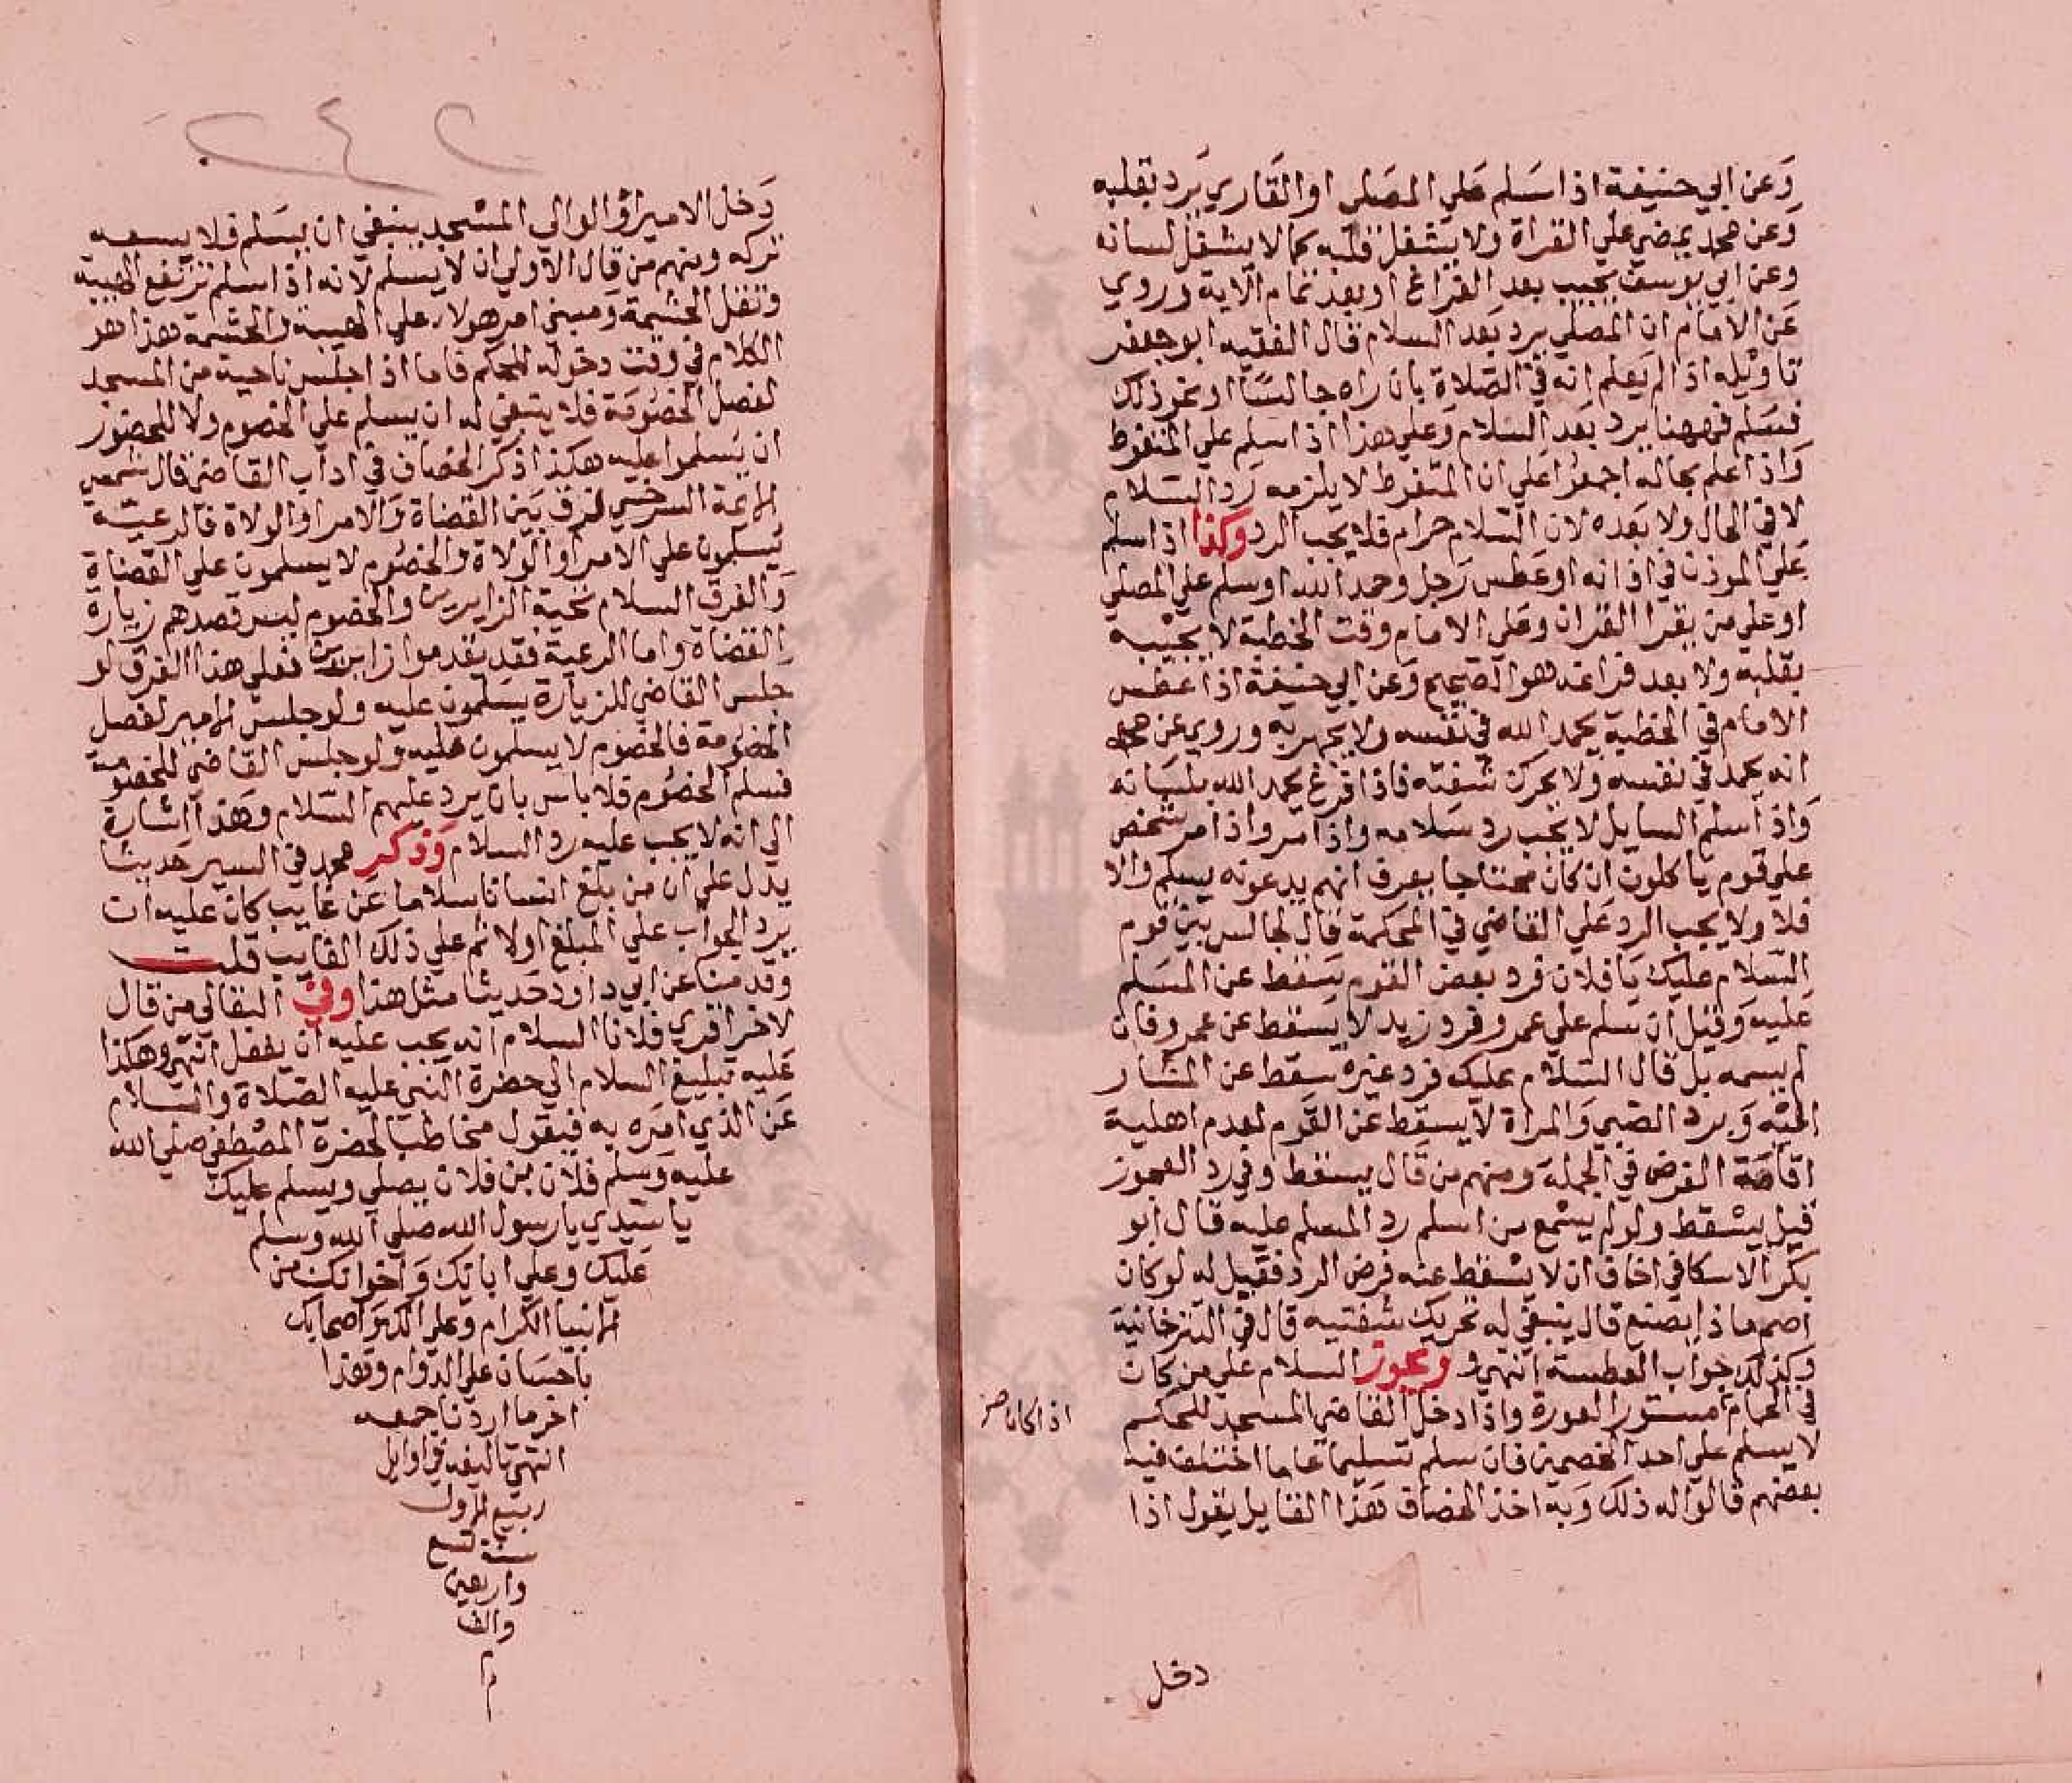 وعن ابي حنيفة اذا سلم علي المصلي او القاري يرد بقلبه
وعن محمد يمضي علي القراة ولا يشغل قلبه كما لا يشغل لسانه
وعن ابي يوسف يجيب بعد الفراغ او بعد تمام الاية وروي
عن الامام ان المصلي يرد بعد السلام قال الفقيه ابو جعفر
تاويله اذا لم يعلم انه في الصلاة بان راه جالسا او نحو ذلك
فسلم فههنا يرد بعد السلام وعلي هذا اذا سلم علي المتغوط
واذا علم بحاله اجمعوا علي ان المتغوط لا يلزمه رد السلام
لا في الحال ولا بعده لان السلام حرام فلا يجب الرد وكذا اذا سلم
علي الموذن في اذانه او عطس رجل وحمد الله او سلم علي المصلي
او علي من يقرا القران وعلي الامام وقت الخطبة لا يجيبه
بقلبه ولا بعد فراغه هو الصحيح وعن ابي حنيفة اذا عطس
الامام في الخطبة يحمد الله في نفسه ولا يجهر به وروي عن محمد
انه يحمد في نفسه ولا يحرك شفتيه فاذا فرغ يحمد الله بلسانه
واذا سلم السايل لا يجب رد سلامه واذا مر واذا مر شخص
علي قوم ياكلون ان كان محتاجا يعرف انهم يدعونه يسلم والا
فلا ولا يجب الرد علي القاضي في المحكمة قال لجالس بين قوم
السلام عليك يا فلان فرد بعض القوم يسقط عن المسلم
عليه وقيل ان سلم علي عمرو فرد زيد لا يسقط عن عمرو فان
لم يسمه بل قال السلام عليك فرد غيره سقط عن المشار
اليه وبرد الصبي والمراة لا يسقط عن القوم لعدم اهلية
اقامة الفرض في الجملة ومنهم من قال يسقط وفي رد العجوز
قيل يسقط ولو لم يسمع من اسلم رد المسلم عليه قال ابو
بكر الاسكافي اخاف ان لا يسقط عنه فرض الرد فقيل له لو كان
اصم ماذا يصنع قال ينبغي له تحريك شفتيه قال في التترخانية
وكذلك جواب العطسة انتهي و ويجوز السلام علي من كان
في الحمام مستور العورة واذا دخل القاضي المسجد للحكم
لا يسلم علي احد الخصمين فان سلم تسليما عاما اختلف فيه
بعضهم قالوا له ذلك وبه اخذ الخصاف هذا القايل يقول اذا
دخل
٢٤٢
دخل الامير او الوالي المسجد ينبغي ان يسلم فلا يسعه
تركه ومنهم من قال الاولي ان لا يسلم لانه اذا سلم ترتفع الهيبة
وتقل الحشمة ومبني امر هولاء علي الهيبة والحشمة هذا هو
الكلام في وقت دخوله للحكم فاما اذا جلس ناحية من المسجد
لفصل الخصومة فلا ينبغي له ان يسلم علي الخصوم ولا للخصوم
ان يسلموا عليه هكذا ذكر الخصاف في اداب القاضي قال شمس
الايمة السرخسي فرق بين القضاة والامرا والولاة فالرعية
يسلمون علي الامرا والولاة والخصوم لا يسلمون علي القضاة
والفرق السلام تحية الزايرين والخصوم ليس قصدهم زيارة
القضاة واما الرعية فقد تقدموا زايرين فعلي هذا الفرق لو
جلس القاضي للزيارة يسلمون عليه ولو جلس الامير لفصل
الخصومة فالخصوم لا يسلمون عليه ولو جلس القاضي للخصومة
فسلم الخصوم فلا باس بان يرد عليهم السلام وهذا اشارة
الي انه لا يجب عليه رد السلام وذكر محمد في السير حديثا
يدل علي ان من بلغ انسانا سلاما عن غايب كان عليه ان
يرد الجواب علي المبلغ اولا ثم علي ذلك الغايب قلت
وقدمنا عن ابي داود حديثا مثل هذا وفي البقالي من قال
لاخر اقري فلانا السلام انه يجب عليه ان يفعل انتهي وهكذا
عليه تبليغ السلام الي حضرة النبي عليه الصلاة والسلام
عن الذي امره به فيقول مخاطبا لحضرة المصطفي صلي الله
عليه وسلم فلان بن فلان يصلي ويسلم عليك
يا سيدي يا رسول الله صلي الله وسلم
عليك وعلي ابايك واخوانك من
الانبيا الكرام وعلي الك واصحابك
باحسان علي الدوام وهذا
اخر ما اردنا جمعه
انتهي تاليفه في اوايل
ربيع الاول
سنة تسع
واربعين
والف
م